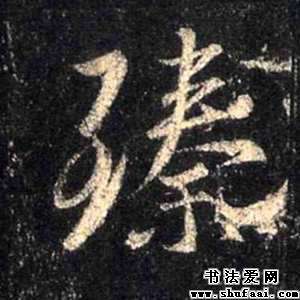 臻
书法爱网
www.shufaai.com